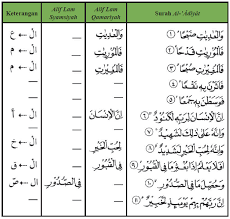 Keterangan | Alif Lam Syamsiyah | Alif Lam Qamariyah | Surah Al-'Ādiyāt
ال ← ع | — | وَالْعٰدِيٰتِ | وَالْعٰدِيٰتِ ضَبْحًا ١
ال ← م | — | فَالْمُوْرِيٰتِ | فَالْمُوْرِيٰتِ قَدْحًا ٢
ال ← م | — | فَالْمُغِيْرٰتِ | فَالْمُغِيْرٰتِ صُبْحًا ٣
— | — | — | فَاَثَرْنَ بِهٖ نَقْعًا ٤
— | — | — | فَوَسَطْنَ بِهٖ جَمْعًا ٥
ال ← أ | — | اِنَّ الْاِنْسَانَ | اِنَّ الْاِنْسَانَ لِرَبِّهٖ لَكَنُوْدٌ ٦
— | — | — | وَاِنَّهٗ عَلٰى ذٰلِكَ لَشَهِيْدٌ ٧
ال ← خ | — | لِحُبِّ الْخَيْرِ | وَاِنَّهٗ لِحُبِّ الْخَيْرِ لَشَدِيْدٌ ٨
ال ← ق | — | فِى الْقُبُوْرِ | اَفَلَا يَعْلَمُ اِذَا بُعْثِرَ مَا فِى الْقُبُوْرِ ٩
ال ← ص | فِى الصُّدُوْرِ | — | وَحُصِّلَ مَا فِى الصُّدُوْرِ ١٠
— | — | — | اِنَّ رَبَّهُمْ بِهِمْ يَوْمَىِٕذٍ لَّخَبِيْرٌ ١١